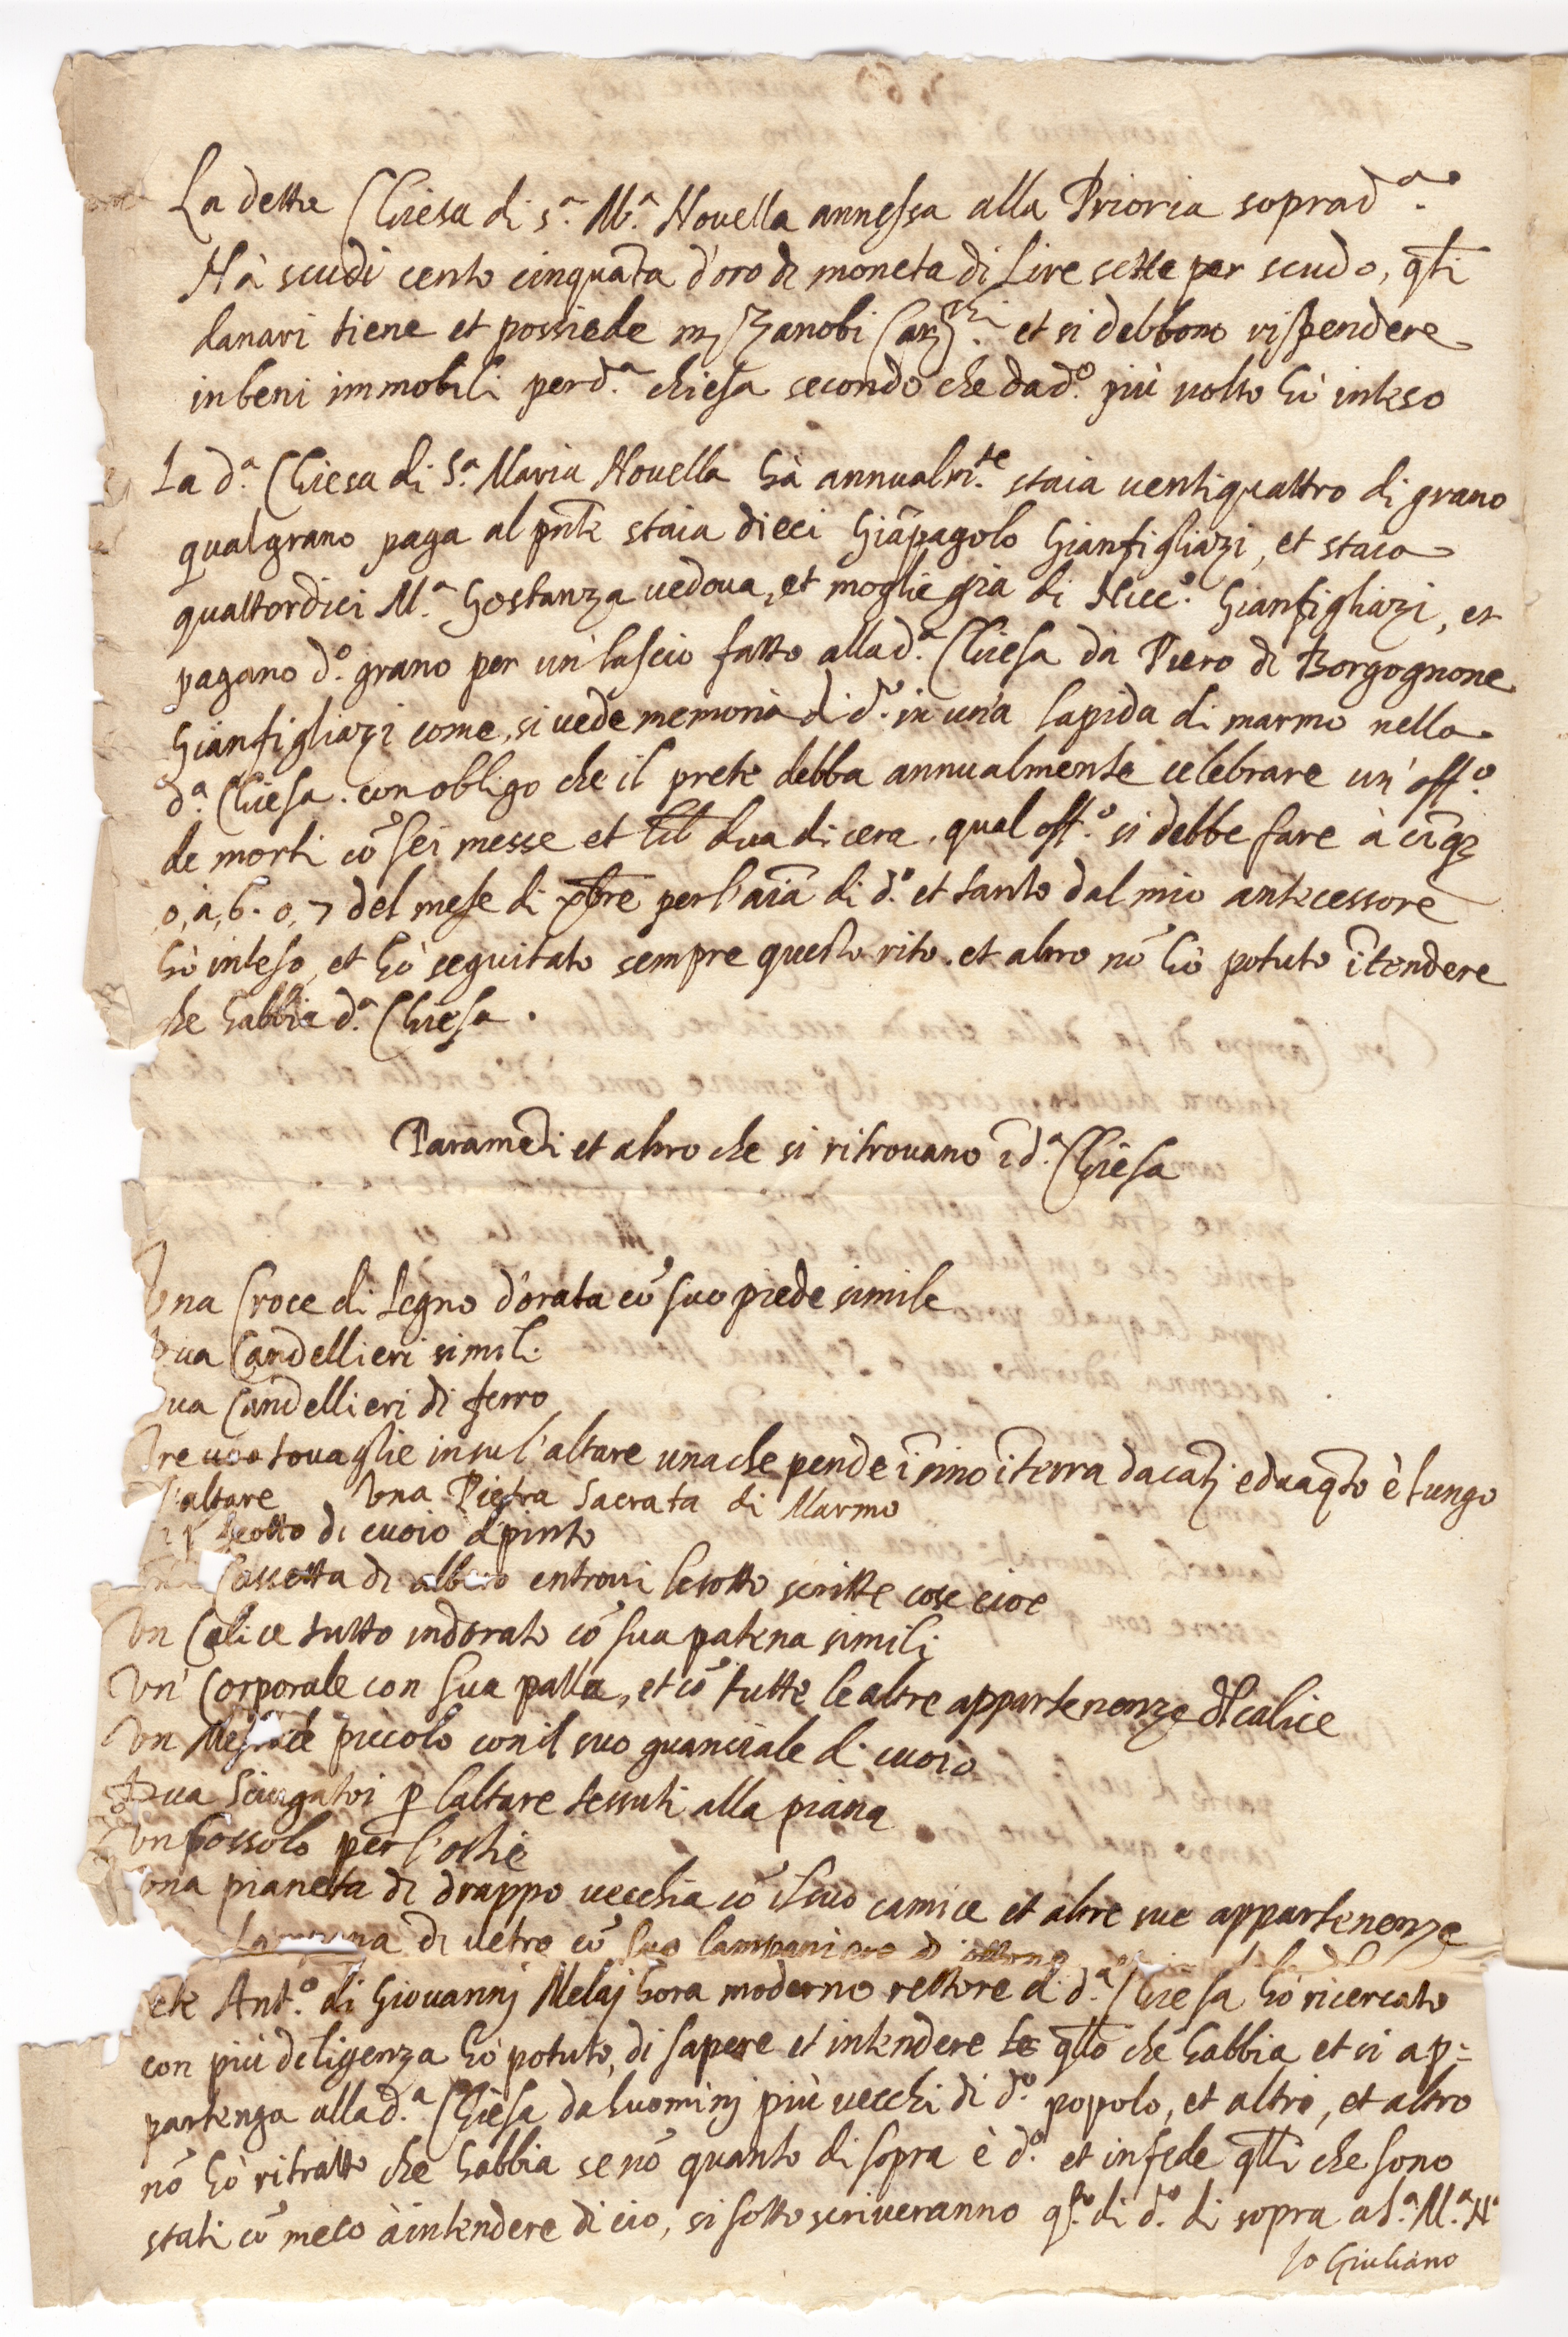 La detta Chiesa di s.ª M.ª Novella annessa alla Prioria soprad.ª
Hà scudi cento cinquãta d'oro di moneta di Lire sette per scudo, q̃li
danari tiene et possiede mʒ Zanobi et si debbono rispendere
in beni immobili per d.ª chiesa secondo che da d.º più volte hò inteso
La d.ª Chiesa di S.ª Maria Novella hà annualm.te staia ventiquattro di grano
qual grano paga al pñte staia dieci Giãpagolo Gianfigliazi, et staia
quattordici M.ª Gostanza vedova, et moglie già di Nicc.º Gianfigliazi, et
pagano d.º grano per un' lascio fatto alla d.ª Chiesa da Piero di Borgognone
Gianfigliazi come si vede memoria di d.º in una lapida di marmo nella
d.ª Chiesa. con obligo che il prete debba annualmente celebrare un' off.º
de morti cõ sei messe et lib̃ dua di cera. qual off.º si debbe fare à cĩqz
o, à, 6. o, 7 del mese di xbre per l'aĩa di d.º et tanto dal mio antecessore
hò inteso, et hò seguitato sempre questo rito. et altro nõ hò potuto ĩtendere
che habbia d.ª Chiesa.
Paramẽti et altro che si ritrovano ĩ d.ª Chiesa
Una Croce di Legno d'orata cõ suo piede simile
Dua Candellieri simili
Dua Candellieri di ferro
Tre tovaglie in su l'altare una che pende ĩsino ĩ terra da cãti e dua q̃to è lungo
l'altare Una Pietra Sacrata di Marmo
di cuoio dipinto
Cassetta di albero entrovi le sotto scritte cose cioe
Un Calice tutto indorato cõ sua patena simili
Un' Corporale con sua palla, et cõ tutte le altre appartenenze del calice
Un Messale piccolo con il suo guanciale di cuoio
Dua Sciugatoi p̱ l'altare tessuti alla piana
Un bossolo per l'ostie
Una pianeta di drappo vecchia cõ il suo camice et altre sue appartenenze
Lampana di vetro cõ suo lampaniere di
Ant.º di Giovannj Melaj hora moderno rettore di d.ª Chiesa hò ricercato
con più diligenza hò potuto, di sapere et intendere q̃llo che habbia et si ap=
partenga alla d.ª Chiesa da huominj più vecchi di d.º popolo, et altri, et altro
nõ hò ritratto che habbia se nõ quanto di sopra è d.º et in fede q̃lli che sono
stati cõ meco à intendere di cio, si sotto scriveranno q.to di d.º di sopra a S.ª M.ª N.ª
Io Giuliano